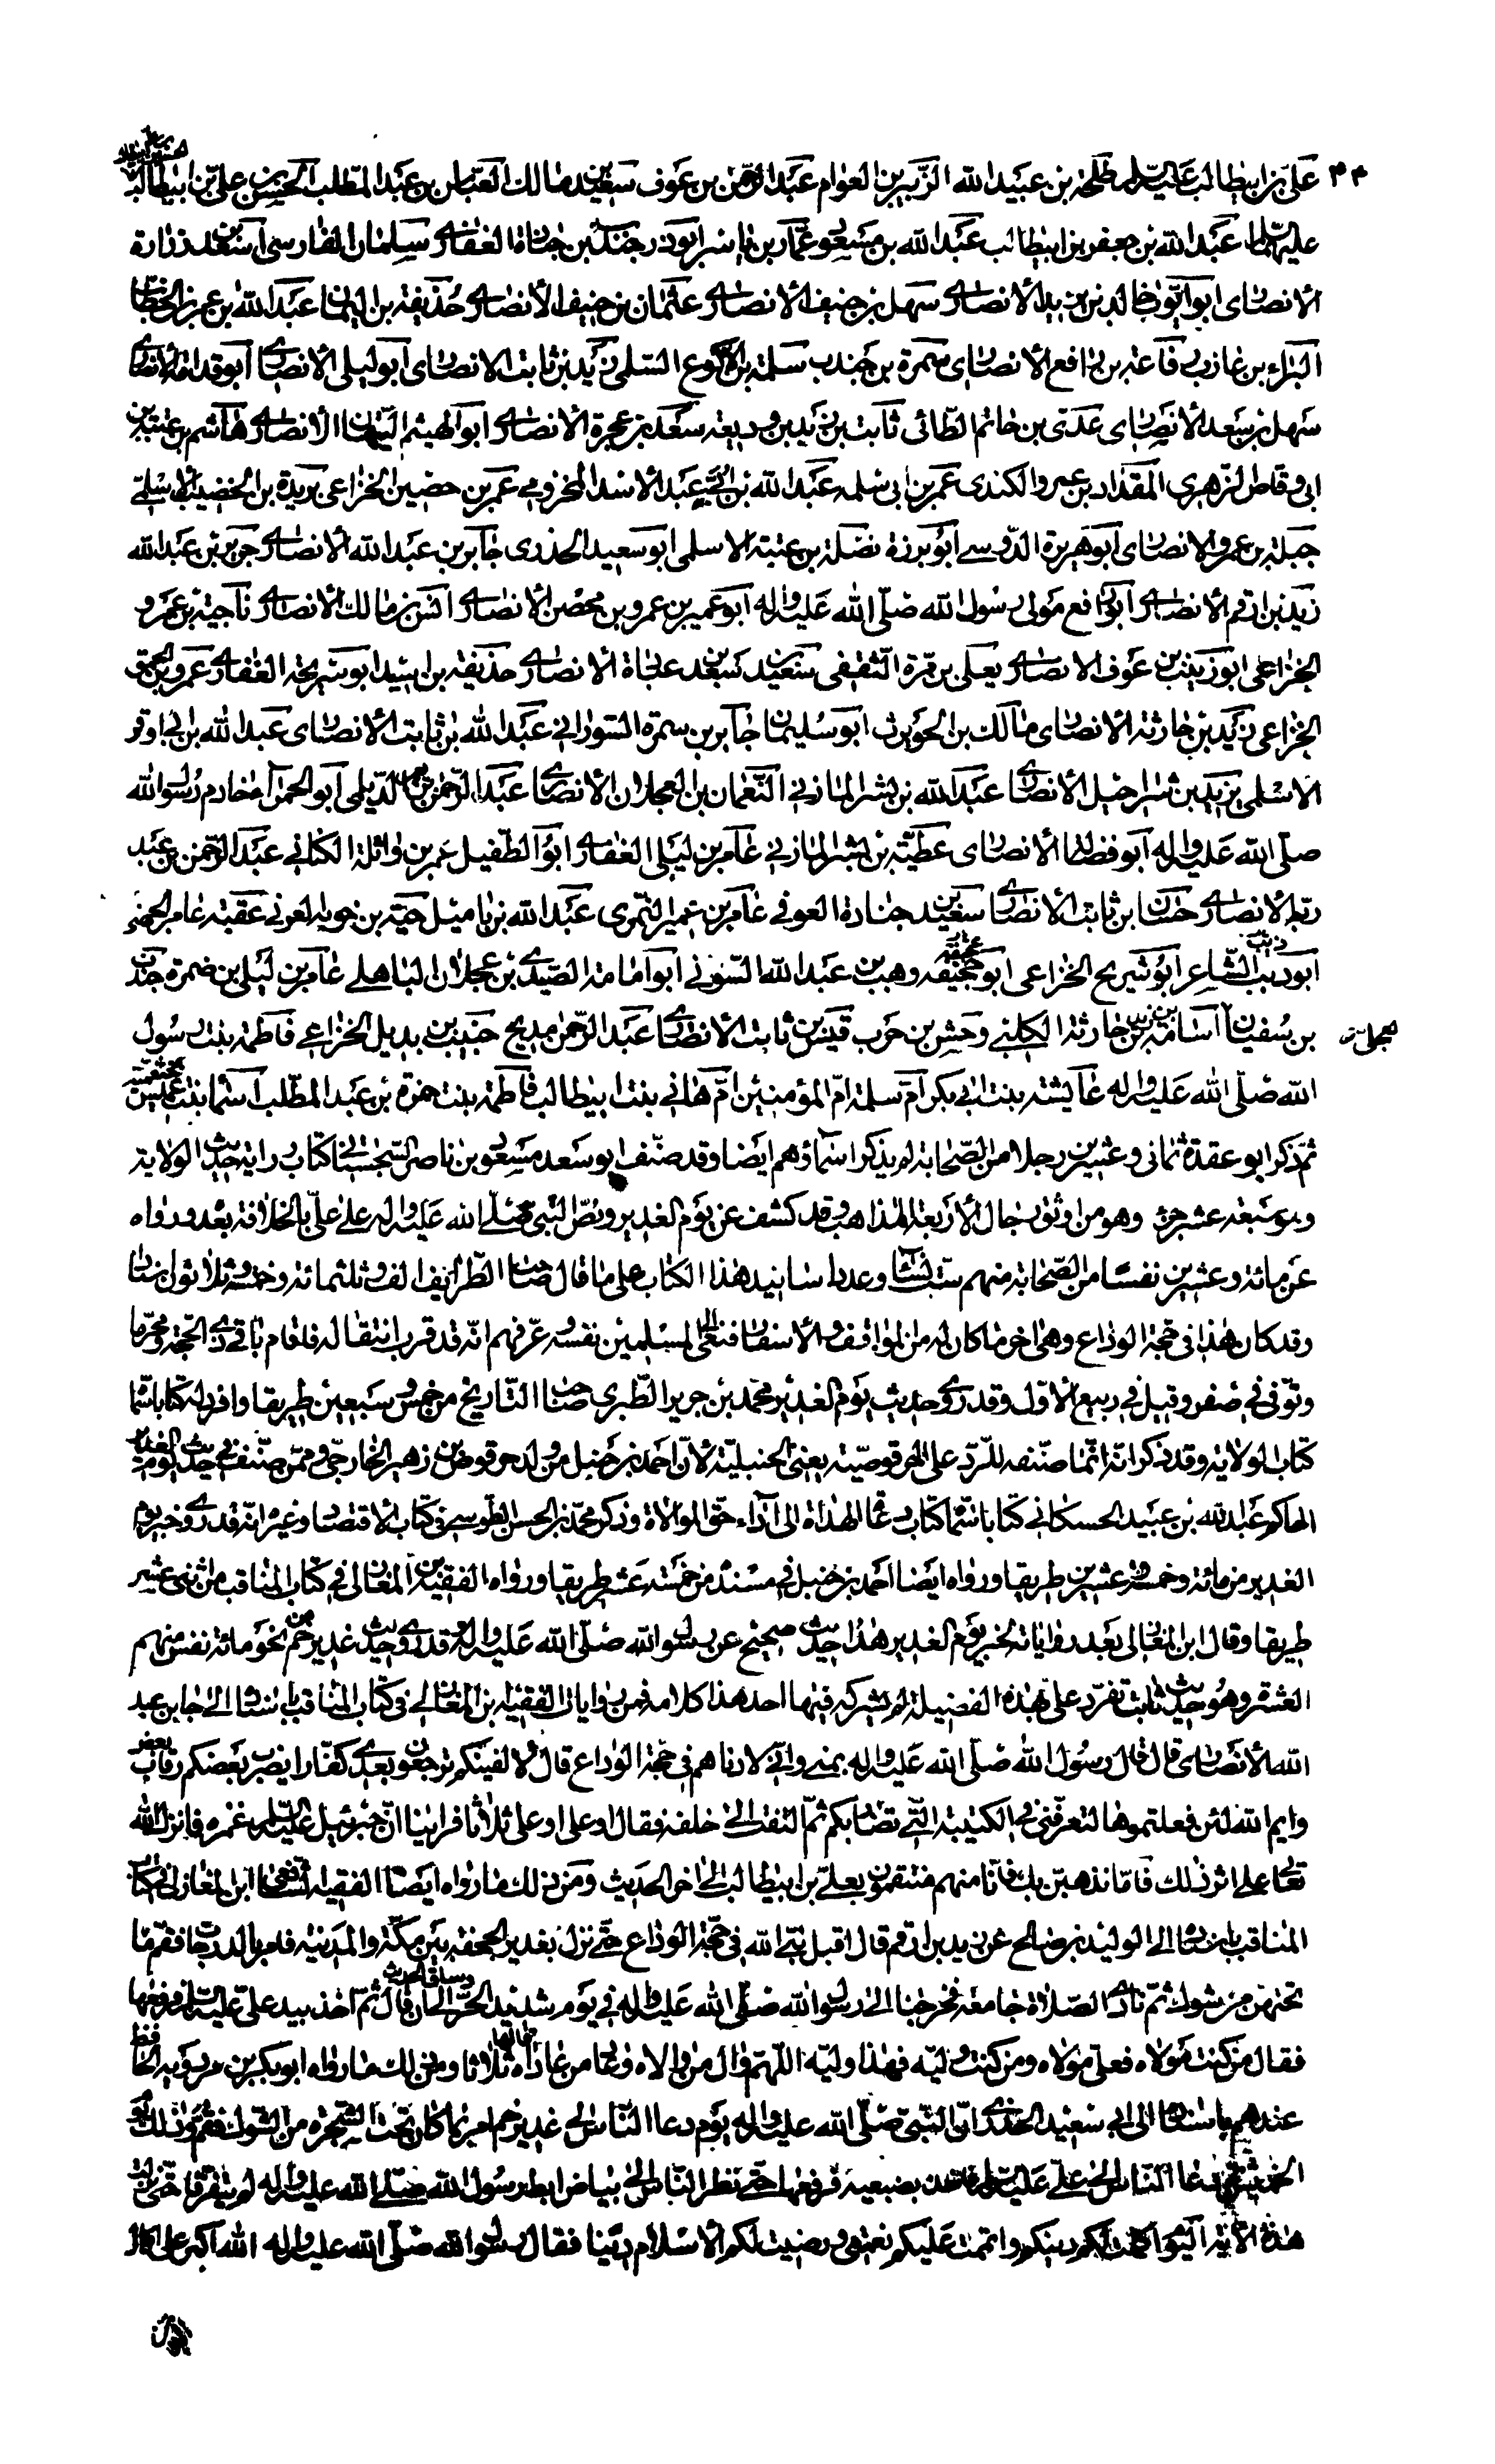 ٣٤ على بن ابيطالب عليه السلم طلحة بن عبيد الله الزبير بن العوام عبد الرحمن بن عوف سعيد بن مالك العباس بن عبد المطلب الحسن بن على بن ابيطالب
عليهما عبد الله بن جعفر بن ابيطالب عبد الله بن مسعود عمار بن ياسر ابوذر جندب بن جنادة الغفارى سلمان الفارسى اسعد بن زرارة
الانصارى ابو ايوب خالد بن زيد الانصارى سهل بن حنيف الانصارى عثمان بن حنيف الانصارى حذيفة بن اليمان عبد الله بن عمر بن الخطاب
البراء بن عازب رفاعة بن رافع الانصارى سمرة بن جندب سلمة بن الاكوع السلمى زيد بن ثابت الانصارى ابو ليلى الانصارى ابو قدامة الانصارى
سهل بن سعد الانصارى عدى بن حاتم الطائى ثابت بن زيد بن وديعة سعد بن عجرة الانصارى ابو الهيثم التيهان الانصارى هاشم بن عتبة بن
ابى وقاص الزهرى المقداد بن عمرو الكندى عمر بن ابى سلمة عبد الله بن ابى عبد الاسد المخزومى عمر بن حضين الخزاعى بريدة بن الخصيب الاسلمى
جبلة بن عمرو الانصارى ابو هريرة الدوسى ابو برزة نضلة بن عتبة الاسلمى ابو سعيد الخدرى جابر بن عبد الله الانصارى جرير بن عبد الله
زيد بن ارقم الانصارى ابو رافع مولى رسول الله صلى الله عليه واله ابو عمير بن عمرو بن محصن الانصارى انس بن مالك الانصارى ناجية بن عمرو
الخزاعى ابو زينب بن عوف الانصارى يعلى بن مرة الثقفى سعيد بن سعد بن عبادة الانصارى حذيفة بن اسيد ابو سريحة الغفارى عمرو بن الحمق
الخزاعى زيد بن حارثة الانصارى مالك بن الحويرث ابو سليمان جابر بن سمرة السورانى عبد الله بن ثابت الانصارى عبد الله بن ابى اوفى
الاسلمى يزيد بن شراحيل الانصارى عبد الله بن بشر المازنى النعمان بن العجلان الانصارى عبد الرحمن بن الديلمى ابو الحمراء خادم رسول الله
صلى الله عليه واله ابو فضالة الانصارى عطية بن بشر المازنى عامر بن ليلى الغفارى ابو الطفيل عمر بن واثلة الكنانى عبد الرحمن بن عبد
ربه الانصارى حسان ابن ثابت الانصارى سعيد بن جنادة العوفى عامر بن عمير النميرى عبد الله بن ياميل حبة بن جوية العرنى عقبة عامر الجهنى
ابو ذيب الشاعر ابو شريح الخزاعى ابو جحيفة وهب بن عبد الله السوئى ابو امامة الصيدى بن عجلان الباهلى عامر بن ليلى بن ضمرة جندب
بن سفيان اسامة بن زيد بن حارثة الكلبى وحشى بن حرب قيس بن ثابت الانصارى عبد الرحمن مدلج حبيب بن بديل الخزاعى فاطمة بنت رسول
الله صلى الله عليه واله عايشة بنت ابى بكر ام سلمة ام المؤمنين ام هانى بنت ابيطالب فاطمة بنت حمزة بن عبد المطلب اسماء بنت عميس الخثعمية
ثم ذكر ابو عقدة ثمانى وعشرين رجلا من الصحابة لم يذكر اسماؤهم ايضا وقد صنف ابو سعد مسعود بن ناصر السجستانى كتاب دراية حديث الولاية
وهو سبعة عشر جزء وهو من اوثق رجال الاربعة المذاهب وقد كشف عن يوم الغدير ونص النبى صلى الله عليه واله على على بالخلافة بعده ورواه
عن مائة وعشرين نفسا من الصحابة منهم ست نساء وعدد اسانيد هذا الكتاب على ما قال صاحب الطرايف الف وثلثمائة وخمسة وثلاثون اسنادا
وقد كان هذا فى حجة الوداع وهى اخر ما كان له من المواقف والاسفار فنعى الى المسلمين نفسه وعرفهم انه قد قرب انتقاله فاقام باقى ذى الحجة ومحرما
وتوفى فى صفر وقيل فى ربيع الاول وقد روى حديث يوم الغدير محمد بن جرير الطبرى صاحب التاريخ من خمس وسبعين طريقا وافرد له كتابا سماه
كتاب الولاية وقد ذكر انه انما صنفه للرد على الحرقوصية يعنى الحنبلية لان احمد بن حنبل من ولد حرقوص بن زهير الخارجى وممن صنف فى حديث يوم الغدير
الحاكم عبد الله بن عبيد الحسكانى كتابا سماه كتاب دعاء الهداة الى اداء حق الموالاة وذكر محمد بن الحسن الطوسى فى كتاب الاقتصاد وغيره انه قد روى خبر يوم
الغدير من مائة وخمسة وعشرين طريقا ورواه ايضا احمد بن حنبل فى مسنده من خمسة عشر طريقا ورواه الفقيه ابن المغازلى فى كتاب المناقب من اثنى عشر
طريقا وقال ابن المغازلى بعد رواياته لخبر يوم الغدير هذا حديث صحيح عن رسول الله صلى الله عليه واله وقد روى حديث غدير خم نحو من مائة نفس منهم
العشرة وهو حديث ثابت تفرد على بهذه الفضيلة لم يشركه فيها احد هذا كلامه فمن روايات الفقيه بن المغازلى فى كتاب المناقب باسناده الى جابر بن عبد
الله الانصارى قال قال رسول الله صلى الله عليه واله بمنى وانى لادناهم فى حجة الوداع قال لا لفينكم ترجعون بعدى كفارا يضرب بعضكم رقاب بعض
وايم الله لئن فعلتموها لتعرفنى فى الكتيبة التى تضاربكم ثم التفت الى خلفه فقال او على او على ثلاثا فراينا ان جبرئيل عليه السلم غمزه فانزل الله
تعالى على اثر ذلك فاما نذهبن بك فانا منهم منتقمون بعلى بن ابيطالب الى اخر الحديث ومن ذلك ما رواه ايضا الفقيه الشافعى ابن المغازلى فى كتاب
المناقب باسناده الى الوليد بن صالح عن زيد بن ارقم قال اقبل نبى الله فى حجة الوداع حتى نزل بغدير الجحفة بين مكة والمدينة فامر بالدوحات فقم ما
تحتهن من شوك ثم نادى الصلاة جامعة فخرجنا الى رسول الله صلى الله عليه واله فى يوم شديد الحر وساق الحديث الى ان قال ثم اخذ بيد على عليه السلم فرفعها
فقال من كنت مولاه فعلى مولاه ومن كنت وليه فهذا وليه اللهم وال من والاه وعاد من عاداه قالها ثلاثا ومن ذلك ما رواه ابو بكر بن مردويه الحافظ
عندهم باسناده الى ابى سعيد الخدرى ان النبى صلى الله عليه واله يوم دعا الناس الى غدير خم امر بما كان تحت الشجرة من الشوك فقم وذلك يوم
الخميس ثم دعا الناس الى على عليه السلم فاخذ بضبعيه فرفعها حتى نظر الناس الى بياض ابط رسول الله صلى الله عليه واله لم يتفرقا حتى نزلت
هذه الاية اليوم اكملت لكم دينكم واتممت عليكم نعمتى ورضيت لكم الاسلام دينا فقال رسول الله صلى الله عليه واله الله اكبر على اكمال